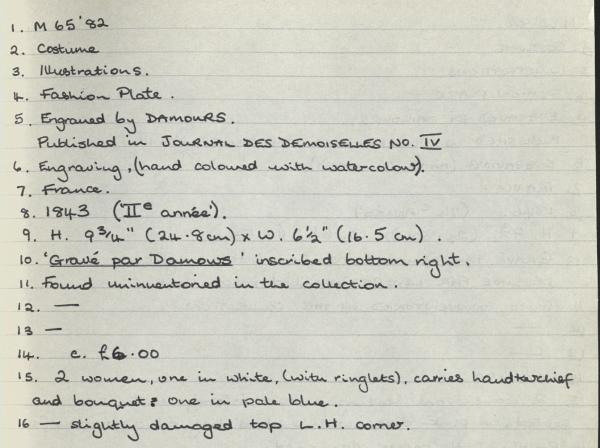 1. M 65'82
2. Costume
3. Illustrations.
4. Fashion Plate.
5. Engraved by DAMOURS.
Published in JOURNAL DES DEMOISELLES NO. IV
6. Engraving, (hand coloured with watercolour).
7. France.
8. 1843 ('IIe année').
9. H. 9 3/4" (24.8cm) x W. 6 1/2" (16.5 cm).
10. 'Gravé par Damours' inscribed bottom right.
11. Found uninventoried in the collection.
12. —
13 —
14. c. £6.00
15. 2 women, one in white, (with ringlets), carries handkerchief
and bouquet; one in pale blue.
16 — slightly damaged top L.H. corner.